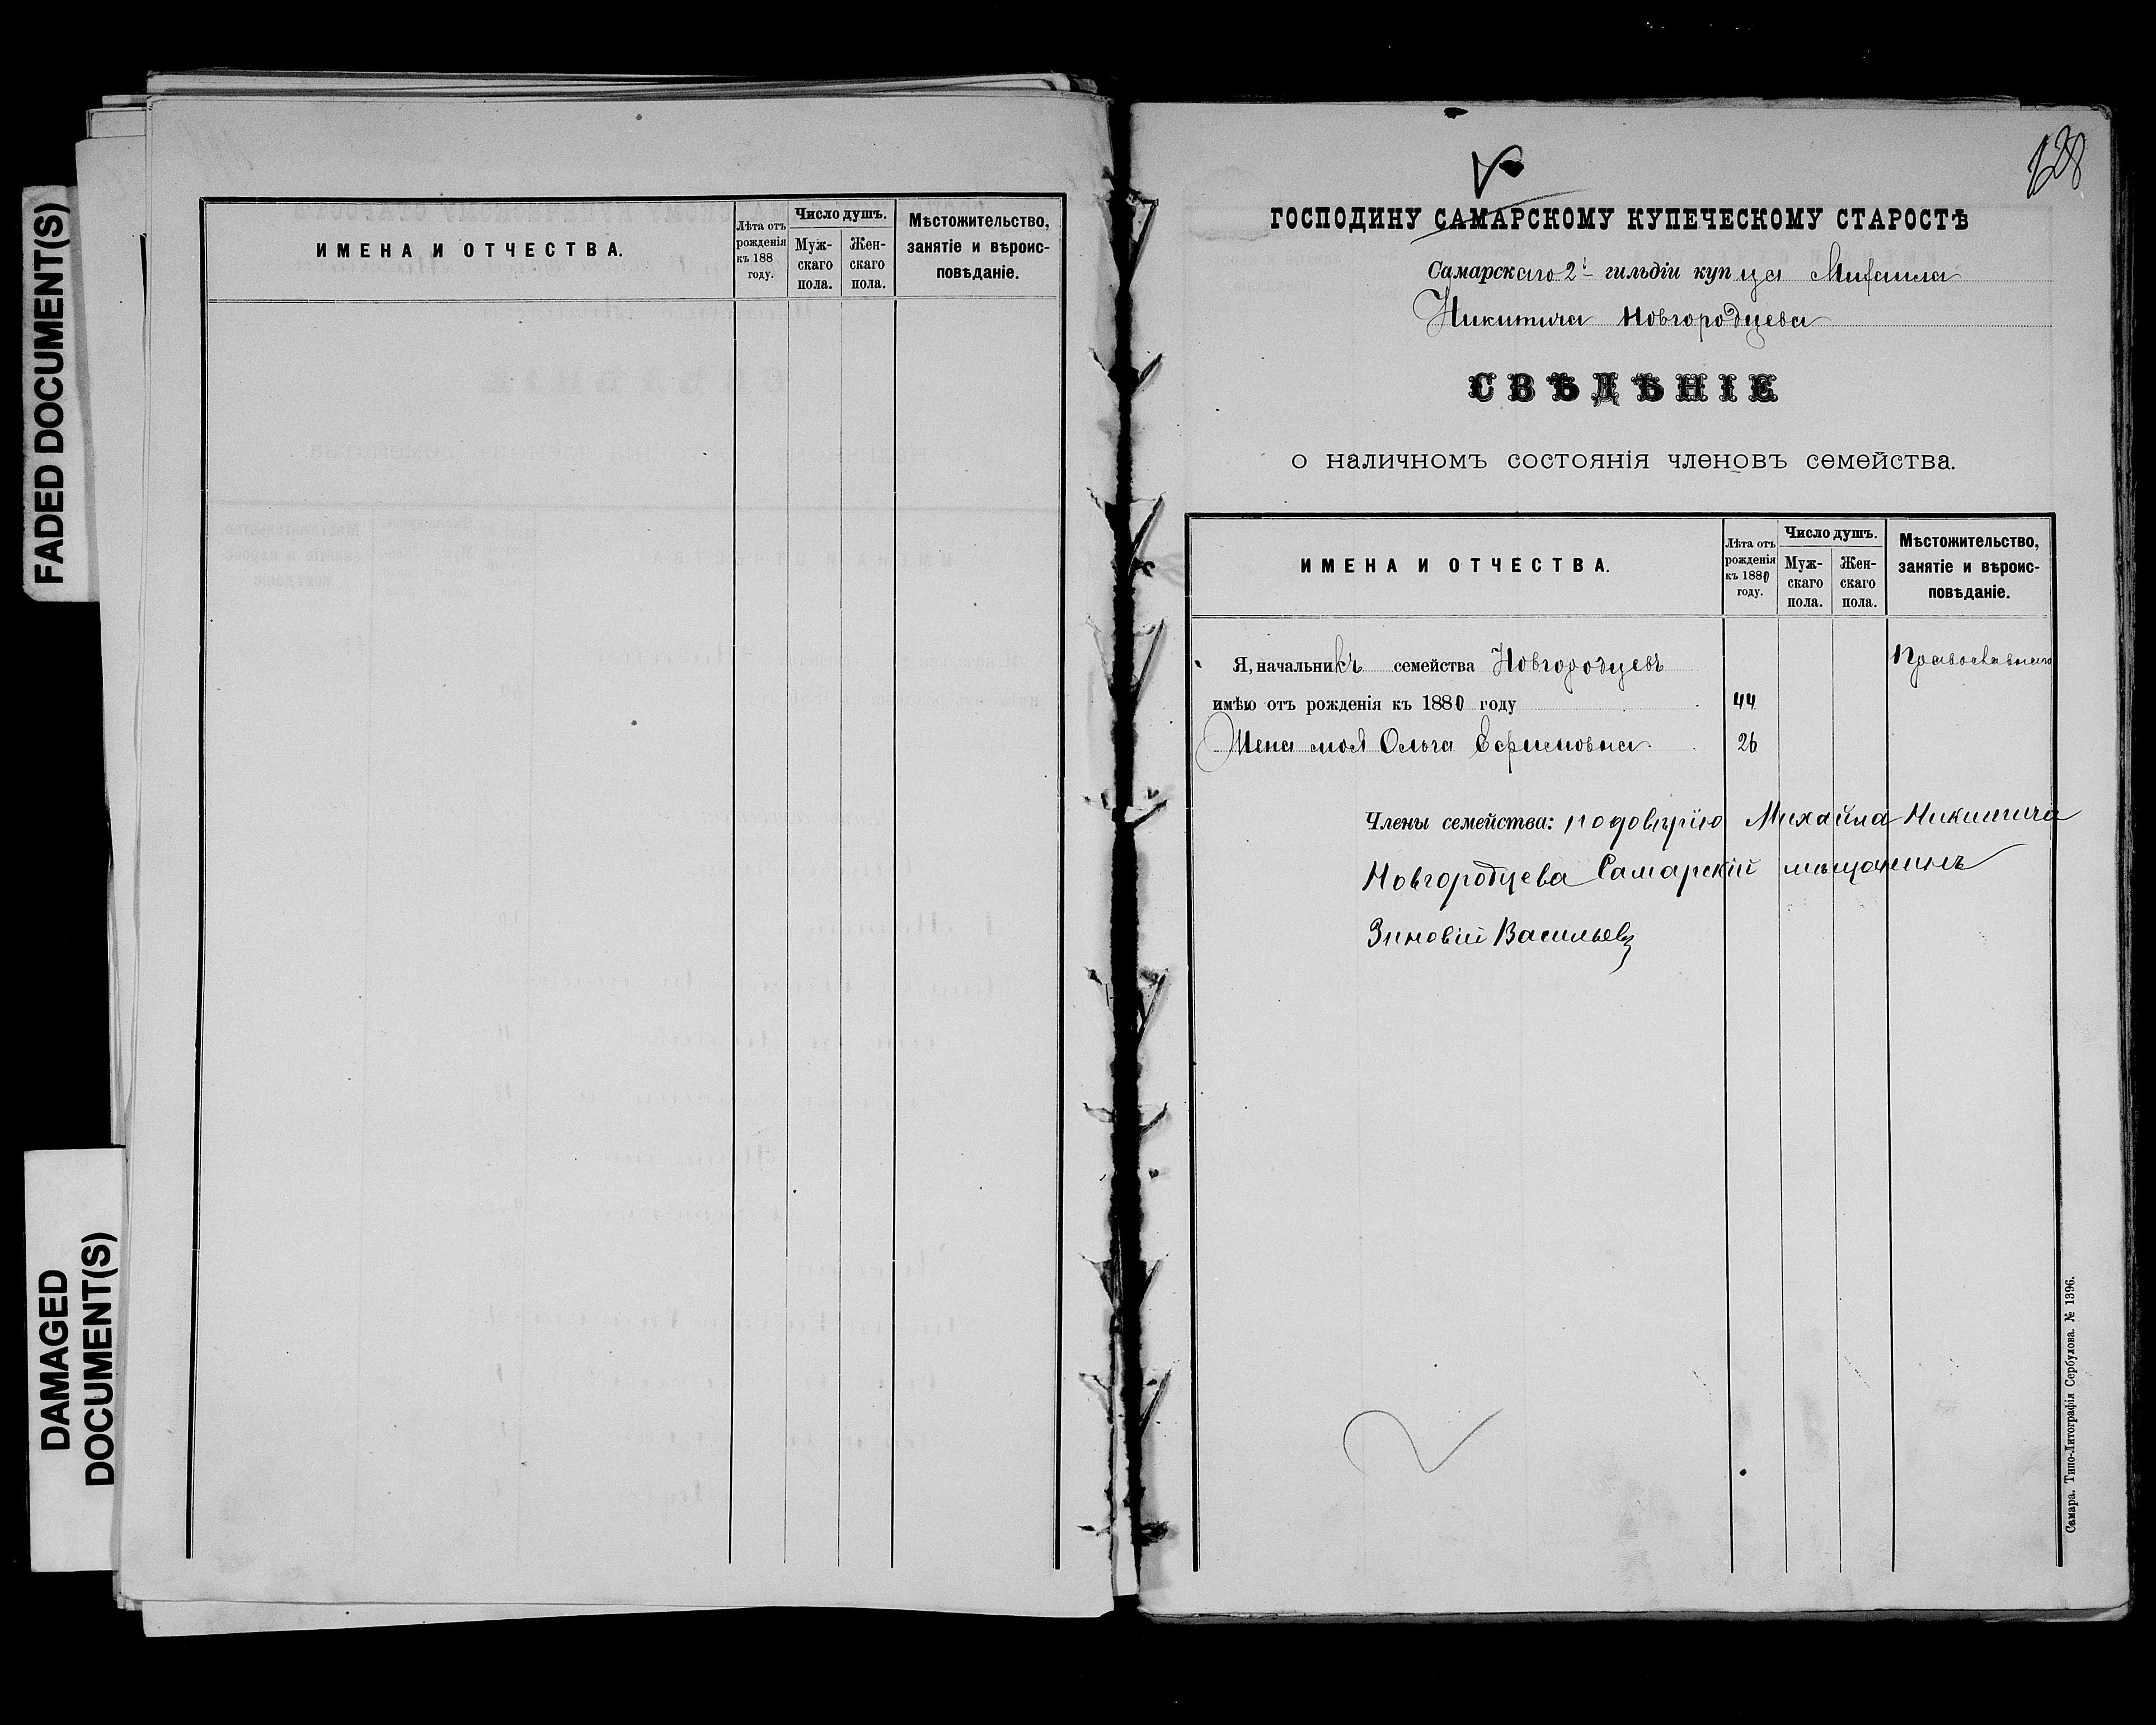 FADED DOCUMENT(S)
DAMAGED
DOCUMENT(S)
ИМЕНА И ОТЧЕСТВА.
Лѣта отъ
рожденія
къ 188
году.
Число душъ.
Муж-
скаго
пола.
Жен-
скаго
пола.
Мѣстожительство,
занятіе и вѣроис-
повѣданіе.
128
ГОСПОДИНУ САМАРСКОМУ КУПЕЧЕСКОМУ СТАРОСТѢ
Самарскаго 2й гильдіи купца Михаила
Никитича Новгородцева
СВѢДѢНІЕ
о наличномъ состоянія членовъ семейства.
ИМЕНА И ОТЧЕСТВА.
Лѣта отъ
рожденія
къ 1880
году.
Число душъ.
Муж-
скаго
пола.
Жен-
скаго
пола.
Мѣстожительство,
занятіе и вѣроис-
повѣданіе.
Я, начальникъ семейства Новгородцевъ Православнаго
имѣю отъ рожденія къ 1880 году 44
Жена моя Ольга Ефимовна 26
Члены семейства: подовѣрію Михайла Никитича
Новгородцева Самарскій мѣщанинъ
Зиновій Васильевъ
Самара. Типо-Литографія Сербулова. № 1396.